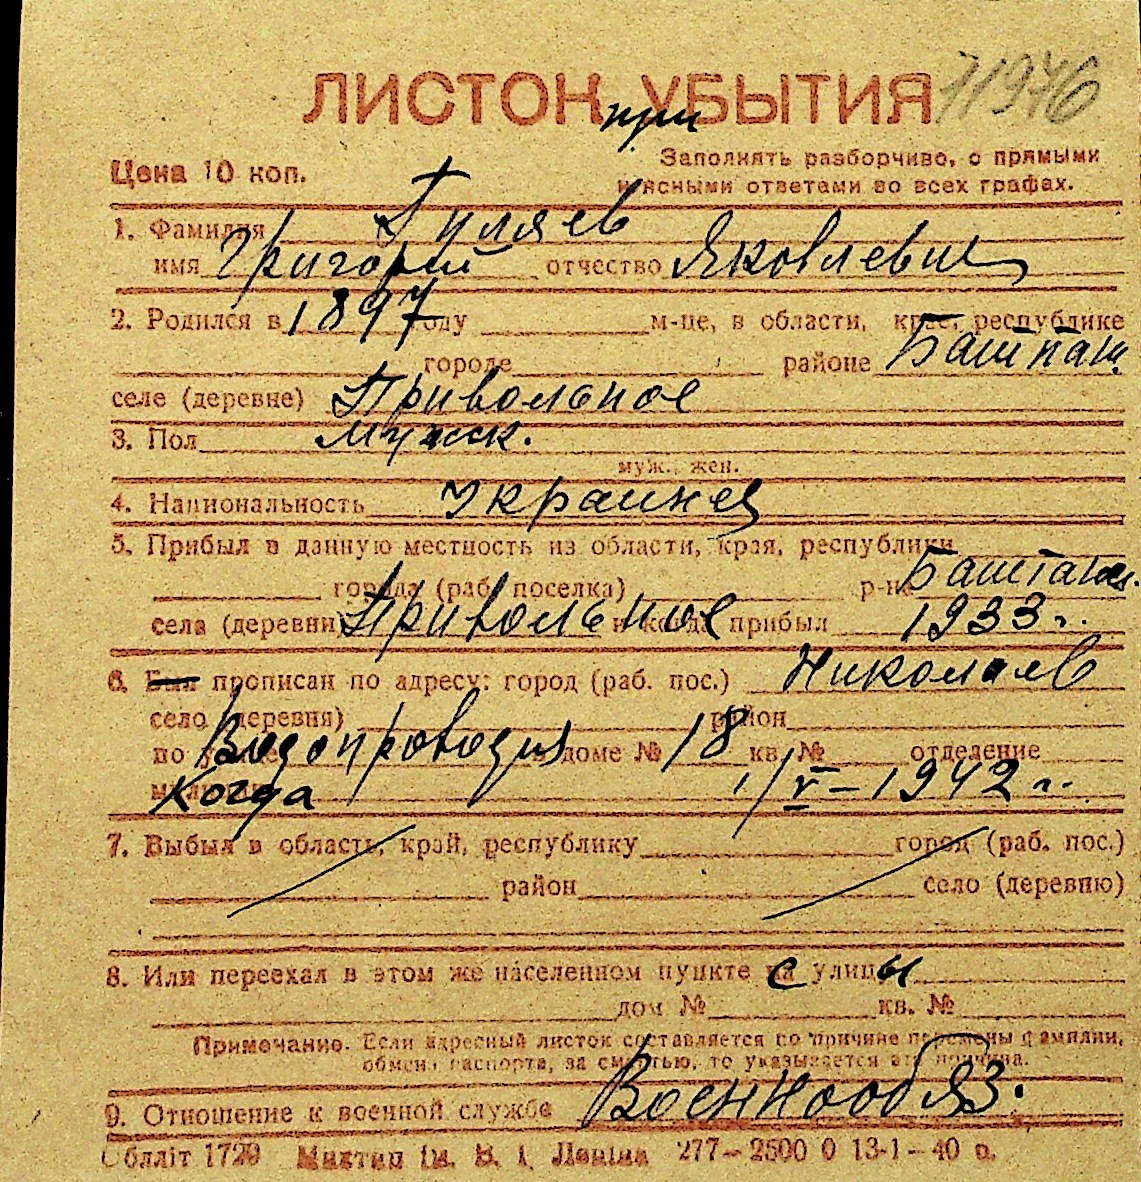 71976
ЛИСТОК УБЫТИЯ
при
Цена 10 коп.
Заполнять разборчиво, с прямыми
и ясными ответами во всех графах.
1. Фамилия Гиляев
имя Григорий отчество Яковлевич
2. Родился в 1897 году м-це, в области, крае, республике
городе районе Баштан.
селе (деревне) Привольное
3. Пол мужск.
муж., жен.
4. Национальность Украинец
5. Прибыл в данную местность из области, края, республики
города (раб. поселка) р-на Баштанск.
села (деревни) Привольное и когда прибыл 1933 г.
6. Был прописан по адресу: город (раб. пос.) Николаев
село (деревня) район
по улице Водопроводная в доме № 18 кв. № отделение
милиции Когда 1/V-1942 г.
7. Выбыл в область, край, республику город (раб. пос.)
район село (деревню)
8. Или переехал в этом же населенном пункте с улицы
дом № кв. №
Примечание. Если адресный листок составляется по причине перемены фамилии,
обмена паспорта, за смертью, то указывается эта причина.
9. Отношение к военной службе Военнообяз.
Облліт 1729 Миктип Ім. В. І. Леніна 277-2500 0 13-1-40 р.